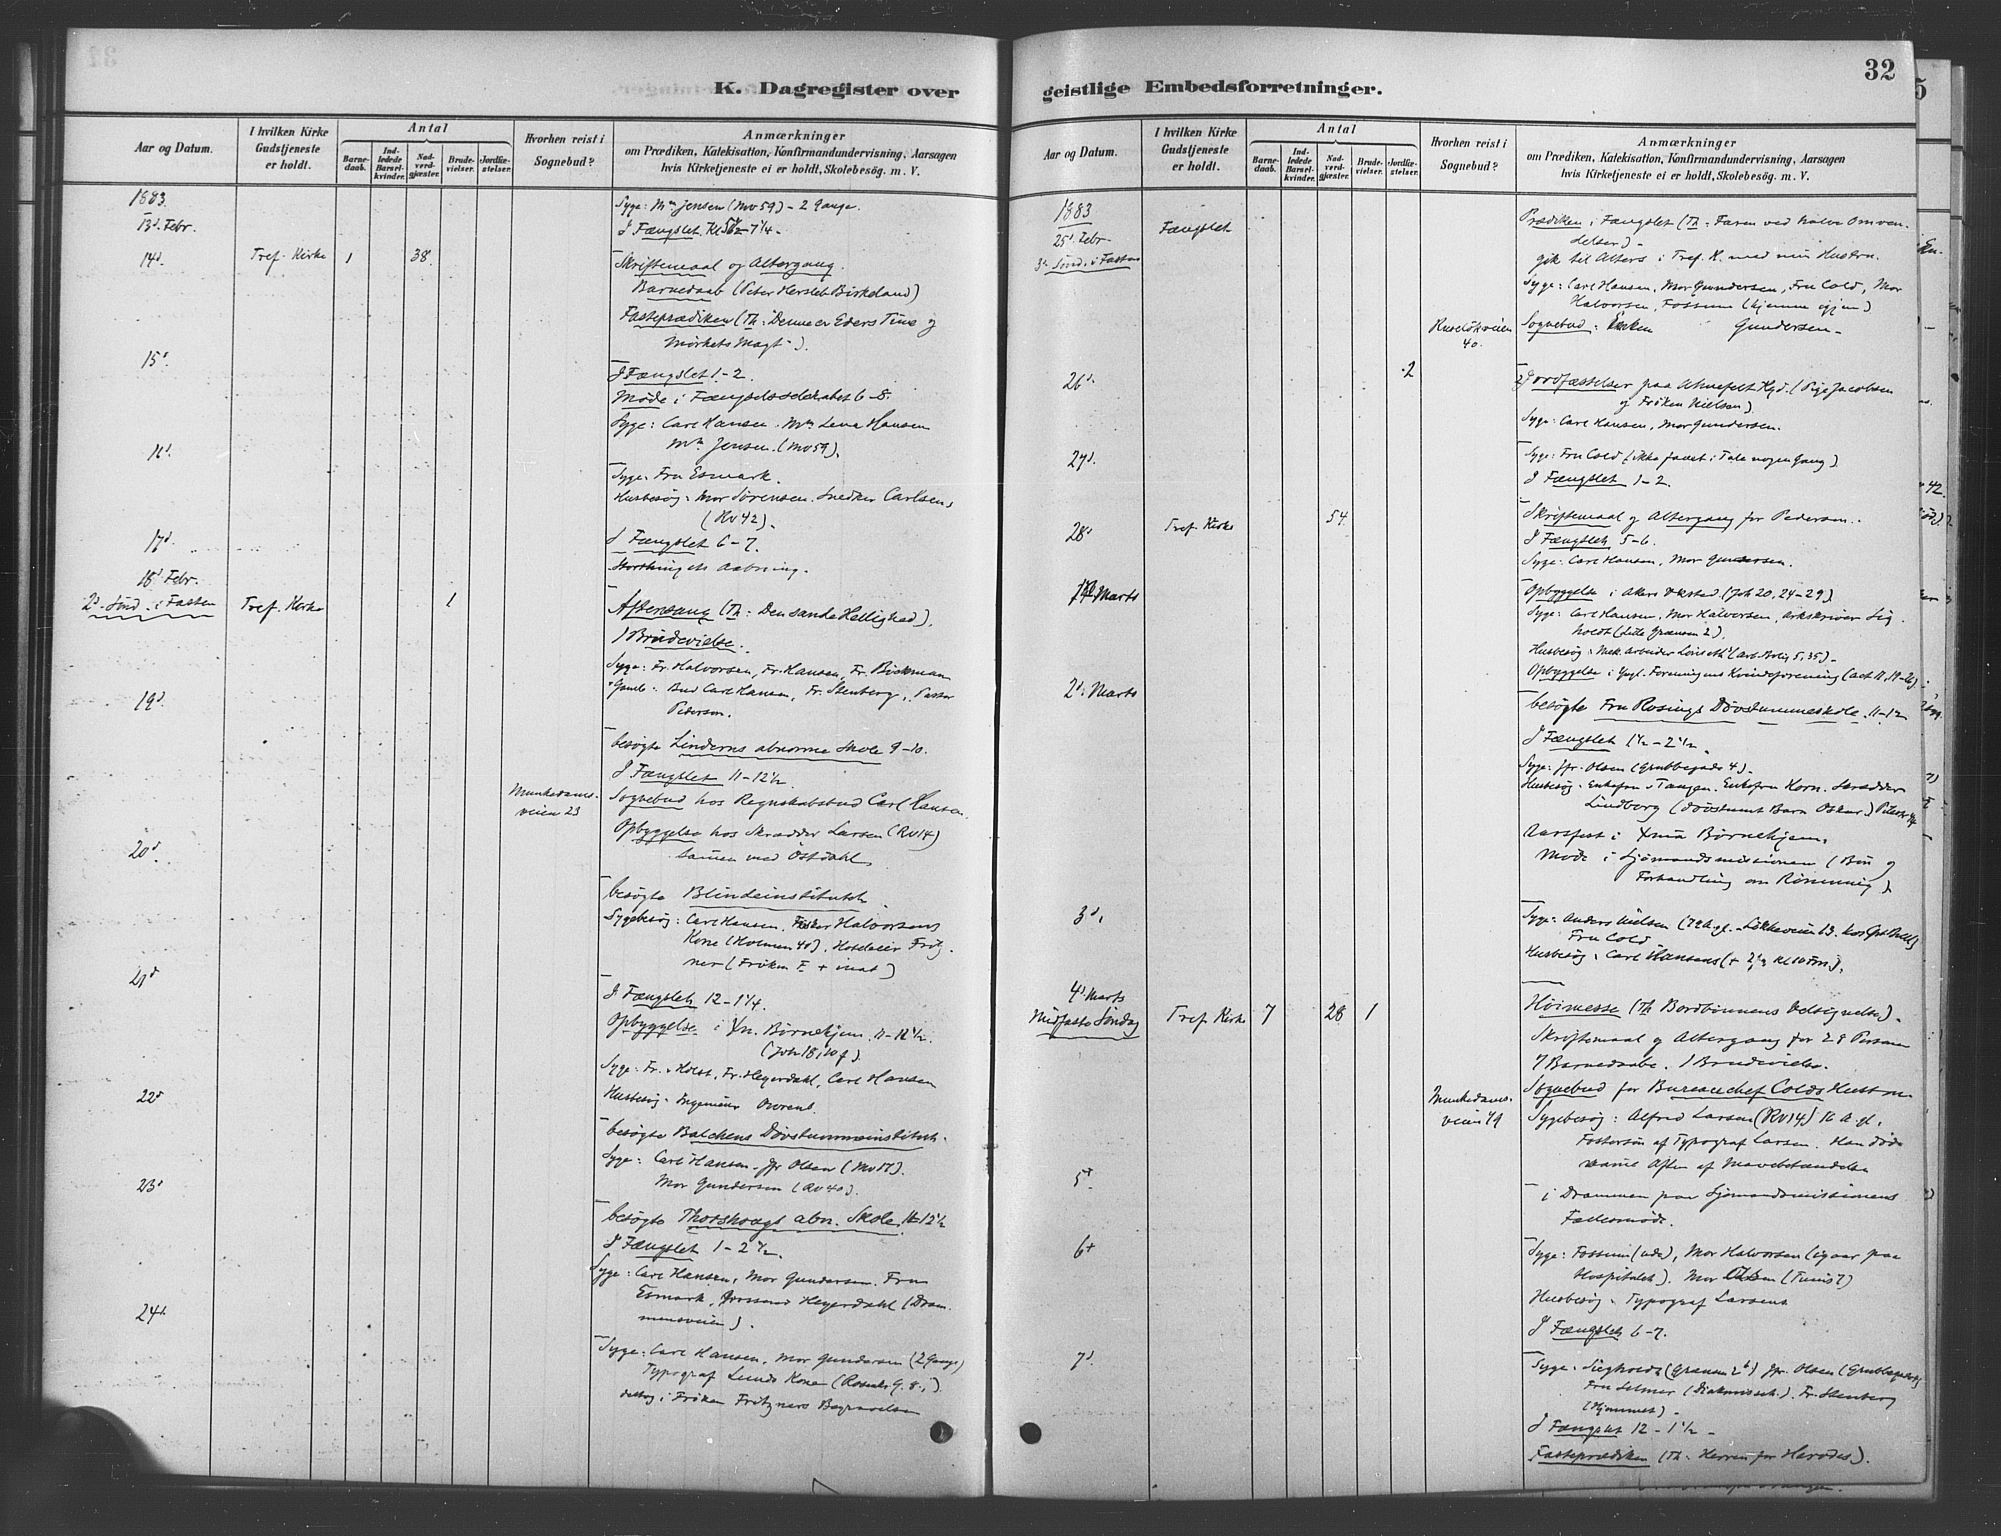 32
K. Dagregister over
Aar og Datum.
I hvilken Kirke
Gudstjeneste
er holdt.
Antal
Barne-
daab.
Ind-
ledede
Barsel-
kvinder.
Nad-
verd-
gjæster.
Brude-
vielser.
Jordfæ-
stelser.
Hvorhen reist i
Sognebud?
Anmærkninger
om Prædiken, Katekisation, Konfirmandundervisning, Aarsagen
hvis Kirketjeneste ei er holdt, Skolebesøg. m. V.
1883
13d. Febr.
Syge: Mm Jensen (Mv 59) - 2 Gange.
I Fængslet. Kl 5½-7¼.
14d.
Tref. Kirke
1
38.
Skriftemaal og Altergang.
Barnedaab (Peter Hersleb Birkeland)
Fasteprædiken (Th: Denne er Eders Time og
Mørkets Magt.)
15d
I Fængslet 1-2.
Møde i Fængselsselskabet 6-8.
Syge: Carl Hansen. Mm Lena Hansen
Mm Jensen. (Mv 59).
16d.
Syge: Fru Esmark.
Husbesøg: Mor Sørensen. Snedker Carlsen,
(Rv 42).
17d.
I Fængslet 6-7.
Storthingets Aabning.
18d Febr.
2d Sønd. i Fasten
Tref. Kirke
1
Aftensang (Th: Den sande Hellighed).
1 Brudevielse.
Syge: Fr. Halvorsen, Fr. Hansen, Fr. Bickman
Bud Carl Hansen, Fr. Stenberg, Pastor
Pedersen.
19d.
besøgte Linderns abnorme Skole 9-10.
I Fængslet 11-12½
Munkedams-
veien 23
Sognebud hos Regnskabsbud Carl Hansen.
Opbyggelse hos Skrædder Larsen (Rv 14)
sammen med Östdahl.
20d.
besøgte Blindeinstitutet.
Sygebesøg: Carl Hansen. Fisker Halvorsens
Kone (Holmen 40). Hoteleier Fritz-
ner (Frøken F. + inat)
21d
I Fængslet 12-1¼.
Opbyggelse i Xn. Børnehjem. 11-12½.
(Joh 18, 10 f)
Syge: Fr. Holst, Fr. Heyerdahl, Carl Hansen
Husbesøg: Ingeniør
22d
besøgte Balchens Døvstummeinstitut.
Syge: Carl Hansen. Jfr Olsen (Mv 17).
Mor Gundersen (Rv 40).
23d
besøgte Thorshougs abn. Skole. 11-12½
I Fængslet 1-2½.
Syge: Carl Hansen, Mor Gundersen. Fru
Esmark, Heyerdahl (Dram-
mensveien).
24d.
Syge: Carl Hansen, Mor Gundersen (2 Gange)
Typograf Lunds Kone (Rosenkr G. 8.)
deltog i Frøken Fritzners Begravelse
geistlige Embedsforretninger.
Aar og Datum.
I hvilken Kirke
Gudstjeneste
er holdt.
Antal
Barne-
daab.
Ind-
ledede
Barsel-
kvinder.
Nad-
verd-
gjæster.
Brude-
vielser.
Jordfæ-
stelser.
Hvorhen reist i
Sognebud?
Anmærkninger
om Prædiken, Katekisation, Konfirmandundervisning, Aarsagen
hvis Kirketjeneste ei er holdt, Skolebesøg. m. V.
1883
25d. Febr
3d Sønd. i Fasten
Fængslet
Prædiken i Fængslet (Th: Faren ved halve Omven-
delser) -
gik til Alters i Tref. K. med min Hustru.
Syge: Carl Hansen, Mor Gundersen, Fru Cold, Mor
Halvorsen, Fossum (hjemme igjen)
Ruseløkveien
40.
Sognebud: Enken Gundersen -
26d.
2
2 Jordfæstelser paa Akersfelt Kgd. (Pige Jacobsen
og Frøken Nielsen)
Syge: Carl Hansen, Mor Gundersen.
27d.
Syge: Fru Cold (ikke faaet i Tale nogen Gang)
I Fængslet 1-2.
28d
Tref. Kirke
54.
Skriftemaal og Altergang for Pedersen.
I Fængslet 5-6.
Syge: Carl Hansen, Mor Gundersen.
1d Marts
Opbyggelse i Akers (Joh 20, 24-29)
Syge: Carl Hansen, Mor Halvorsen, Arkskriver Sig-
holdt (Lille Grænsen 2).
Husbesøg: Mek. Arbeider (Arb. Bolig 5, 35) -
Opbyggelse i Yngl. Foreningens Kvindeforening (Act 11, 19-26)
2d. Marts
besøgte Fru Rosings Døvstummeskole. 11-12
I Fængslet 1½-2½.
Syge: Jfr. Olsen (Grubbegade 4).
Husbesøg: Enkefru v Tangen. Enkefru Horn. Skrædder
Lindberg (døvstumt Barn Oskar)
Aarsfest i Xnia Børnehjem.
Møde i Sjømandsmissionen (Bøn og
Forhandling om Rømning)
3d.
Syge: Anders Nielsen (72 A. gl. - Løkkeveien 13.
Fru Cold
Husbesøg: Carl Hansens (+ 2/3 Kl 10 Fm).
4d. Marts
Midfaste Søndag
Tref. Kirke
7
28
1
Høimesse (Th Bordbønnens Velsignelse).
Skriftemaal og Altergang for 28 Personer
7 Barnedaabe. 1 Brudevielse.
Munkedams-
veien 19
Sognebud for Bureauchef Colds Hustru.
Sygebesøg: Alfred Larsen (Rv 14) 16 A. gl,
Fostersøn af Typograf Larsen. Han døde
samme Aften af Mavebetændelse
5d.
i Drammen paa Sjømandsmissionens
Fællesmøde.
6d
Syge: Fossum (ude), Mor Halvorsen (igaar paa
Hospitalet). Mor Olsen
Husbesøg: Typograf Larsens
I Fængslet 6-7.
7d.
Syge: Sigholdt (Grænsen 2b) Jfr. Olsen (Grubbegaden 4)
Fru Selmer (Diakonisseh.). Fr. Stenberg
(Hjemmet) -
I Fængslet 12-1½ -
Fasteprædiken (Th: Herren for Herodes).